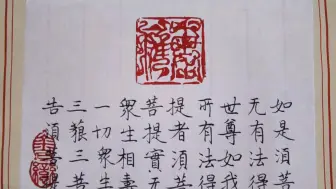 如是須菩
无有法得
世尊如我
所有法得
提者須菩
菩提實无
衆生相壽
一切衆生
三藐三菩
告須菩